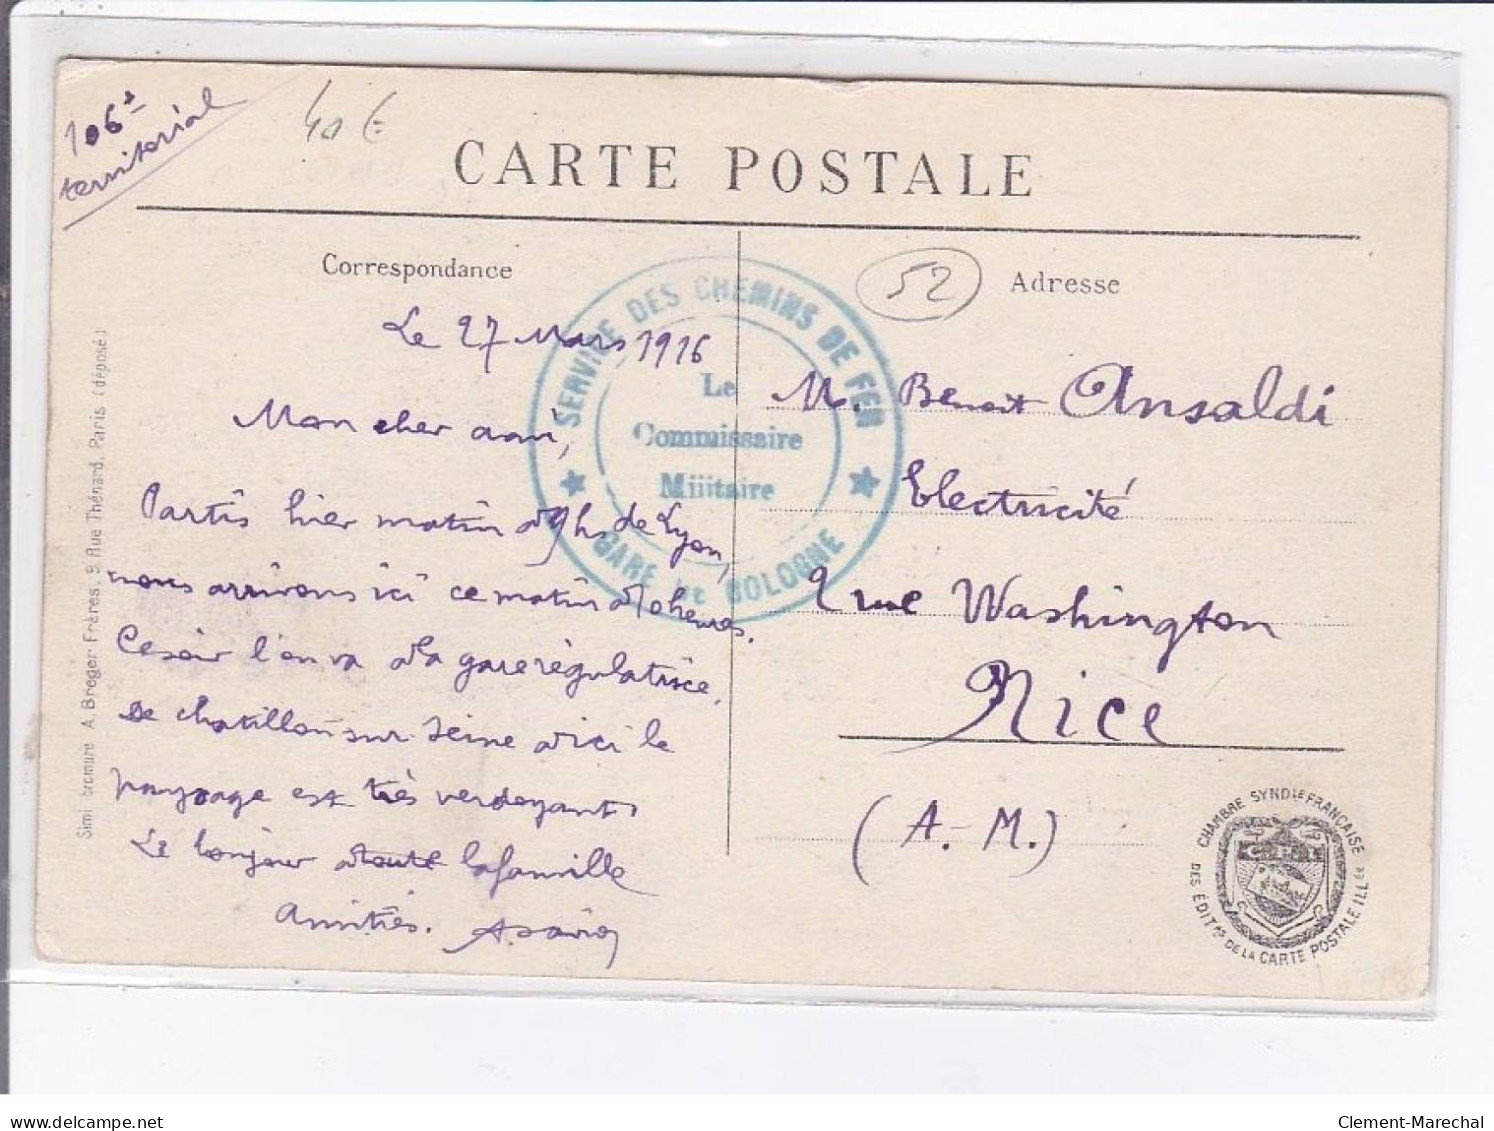 106e
territorial
40 €
CARTE POSTALE
Correspondance
52
Adresse
SERVICE DES CHEMINS DE FER
Le
Commissaire
Militaire
GARE DE BOLOGNE
Le 27 Mars 1916
Mon cher ami,
Partis hier matin à 9hs de Lyon,
nous arrivons ici ce matin à heures.
Ce soir l'on va à la gare régulatrice
de Chatillon sur Seine ici le
paysage est très verdoyant,
Le bonjour à toute la famille
Amitiés.
M. Benoit Ansaldi
Electricité
2 rue Washington
Nice
(A.-M.)
Simi bromure A. Breger Frères, 9 Rue Thénard, Paris (déposé)
CHAMBRE SYNDle FRANÇAISE
DES ÉDITrs DE LA CARTE POSTALE ILLée
delcampe.net
Clement-Marechal